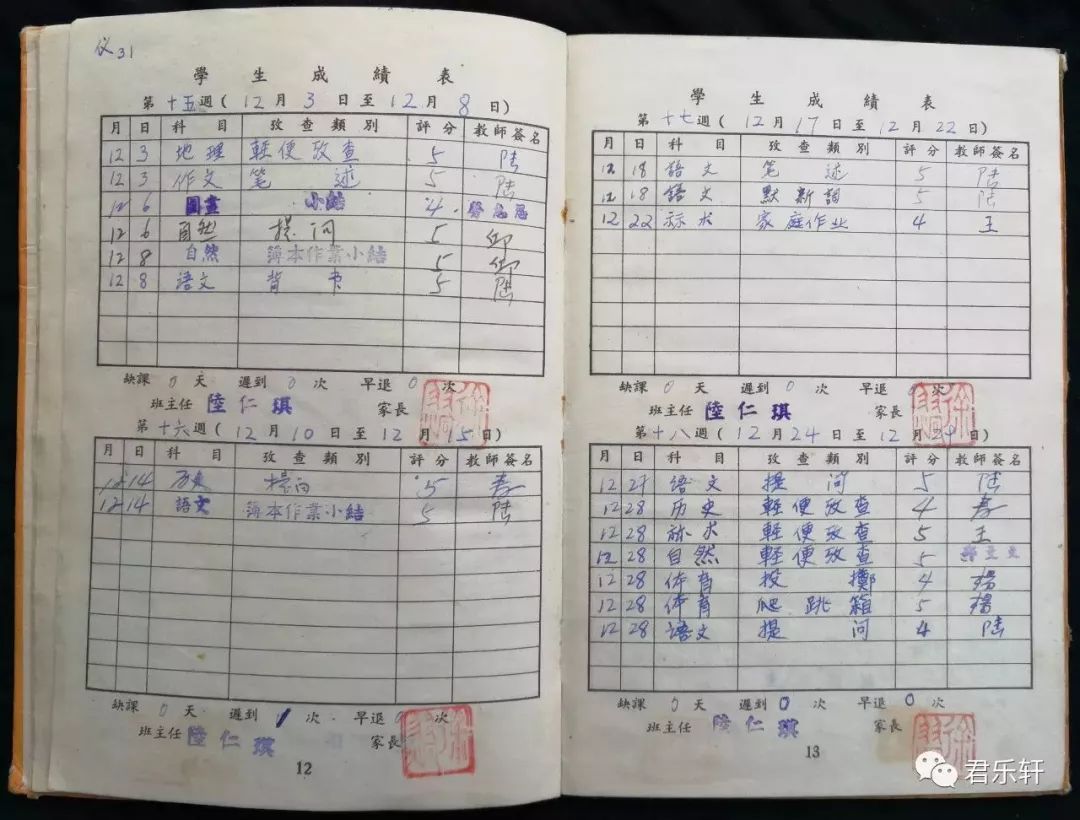 仪31
學生成績表
第十五週(12月3日至12月8日)
月 日 科目 攷查類別 評分 教師簽名
12 3 地理 輕便攷查 5 陸
12 3 作文 笔述 5 陸
12 6 圖畫 小結 4
12 6 自然 提问 5
12 8 自然 簿本作業小結 5
12 8 語文 背书 5 陸
缺課0天 遲到0次 早退0次
班主任 陸仁琪 家長
第十六週(12月10日至12月15日)
月 日 科目 攷查類別 評分 教師簽名
12 14 历史 提问 5
12 14 語文 簿本作業小結 5 陸
缺課0天 遲到1次 早退0次
班主任 陸仁琪 家長
12
學生成績表
第十七週(12月17日至12月22日)
月 日 科目 攷查類別 評分 教師簽名
12 18 語文 笔述 5 陸
12 18 語文 默新詞 5 陸
12 22 祘术 家庭作业 4 王
缺課0天 遲到0次 早退0次
班主任 陸仁琪 家長
第十八週(12月24日至12月29日)
月 日 科目 攷查類別 評分 教師簽名
12 27 語文 提问 5 陸
12 28 历史 輕便攷查 4
12 28 祘术 輕便攷查 5 王
12 28 自然 輕便攷查 5
12 28 体育 投擲 4 楊
12 28 体育 爬跳箱 5 楊
12 28 語文 提问 4 陸
缺課0天 遲到0次 早退0次
班主任 陸仁琪 家長
13
君乐轩